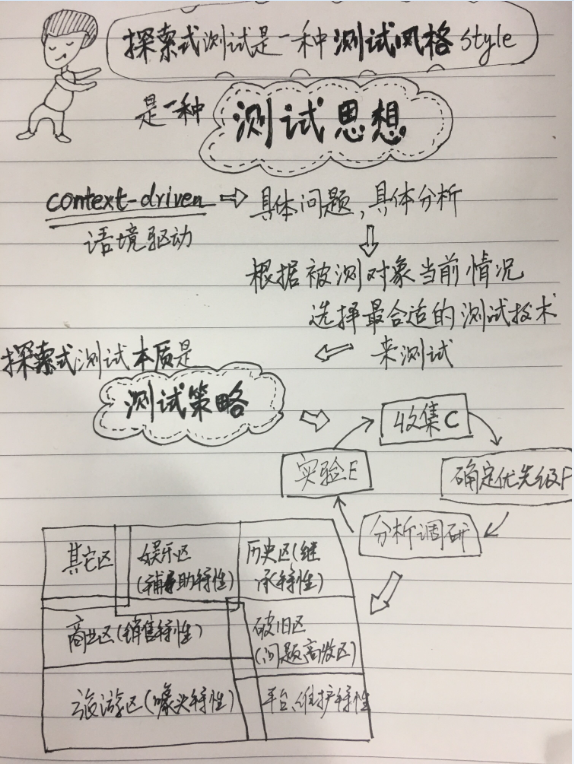 探索式测试是一种测试风格 style
是一种
测试思想
context-driven
具体问题,具体分析
语境驱动
根据被测对象当前情况
选择最合适的测试技术
来测试
探索式测试本质是
测试策略
收集C
实验E
确定优先级P
分析调研
其它区
娱乐区
(辅助特性)
历史区(继
承特性)
商业区(销售特性)
破旧区
(问题高发区)
旅游区(噱头特性)
平台、维护特性